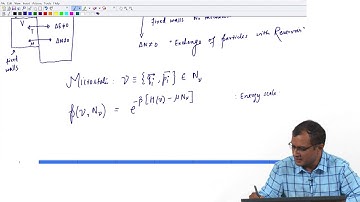 V
T
μ
ΔE≠0
ΔN≠0
fixed walls
fixed walls
ΔN≠0 "Exchange of particles with Reservoir"
Microstate: ν ≡ {q⃗ᵢ, p⃗ᵢ} ∈ N_ν
p(ν, N_ν) = e^{-β[H(ν) - μN_ν]} : Energy scale